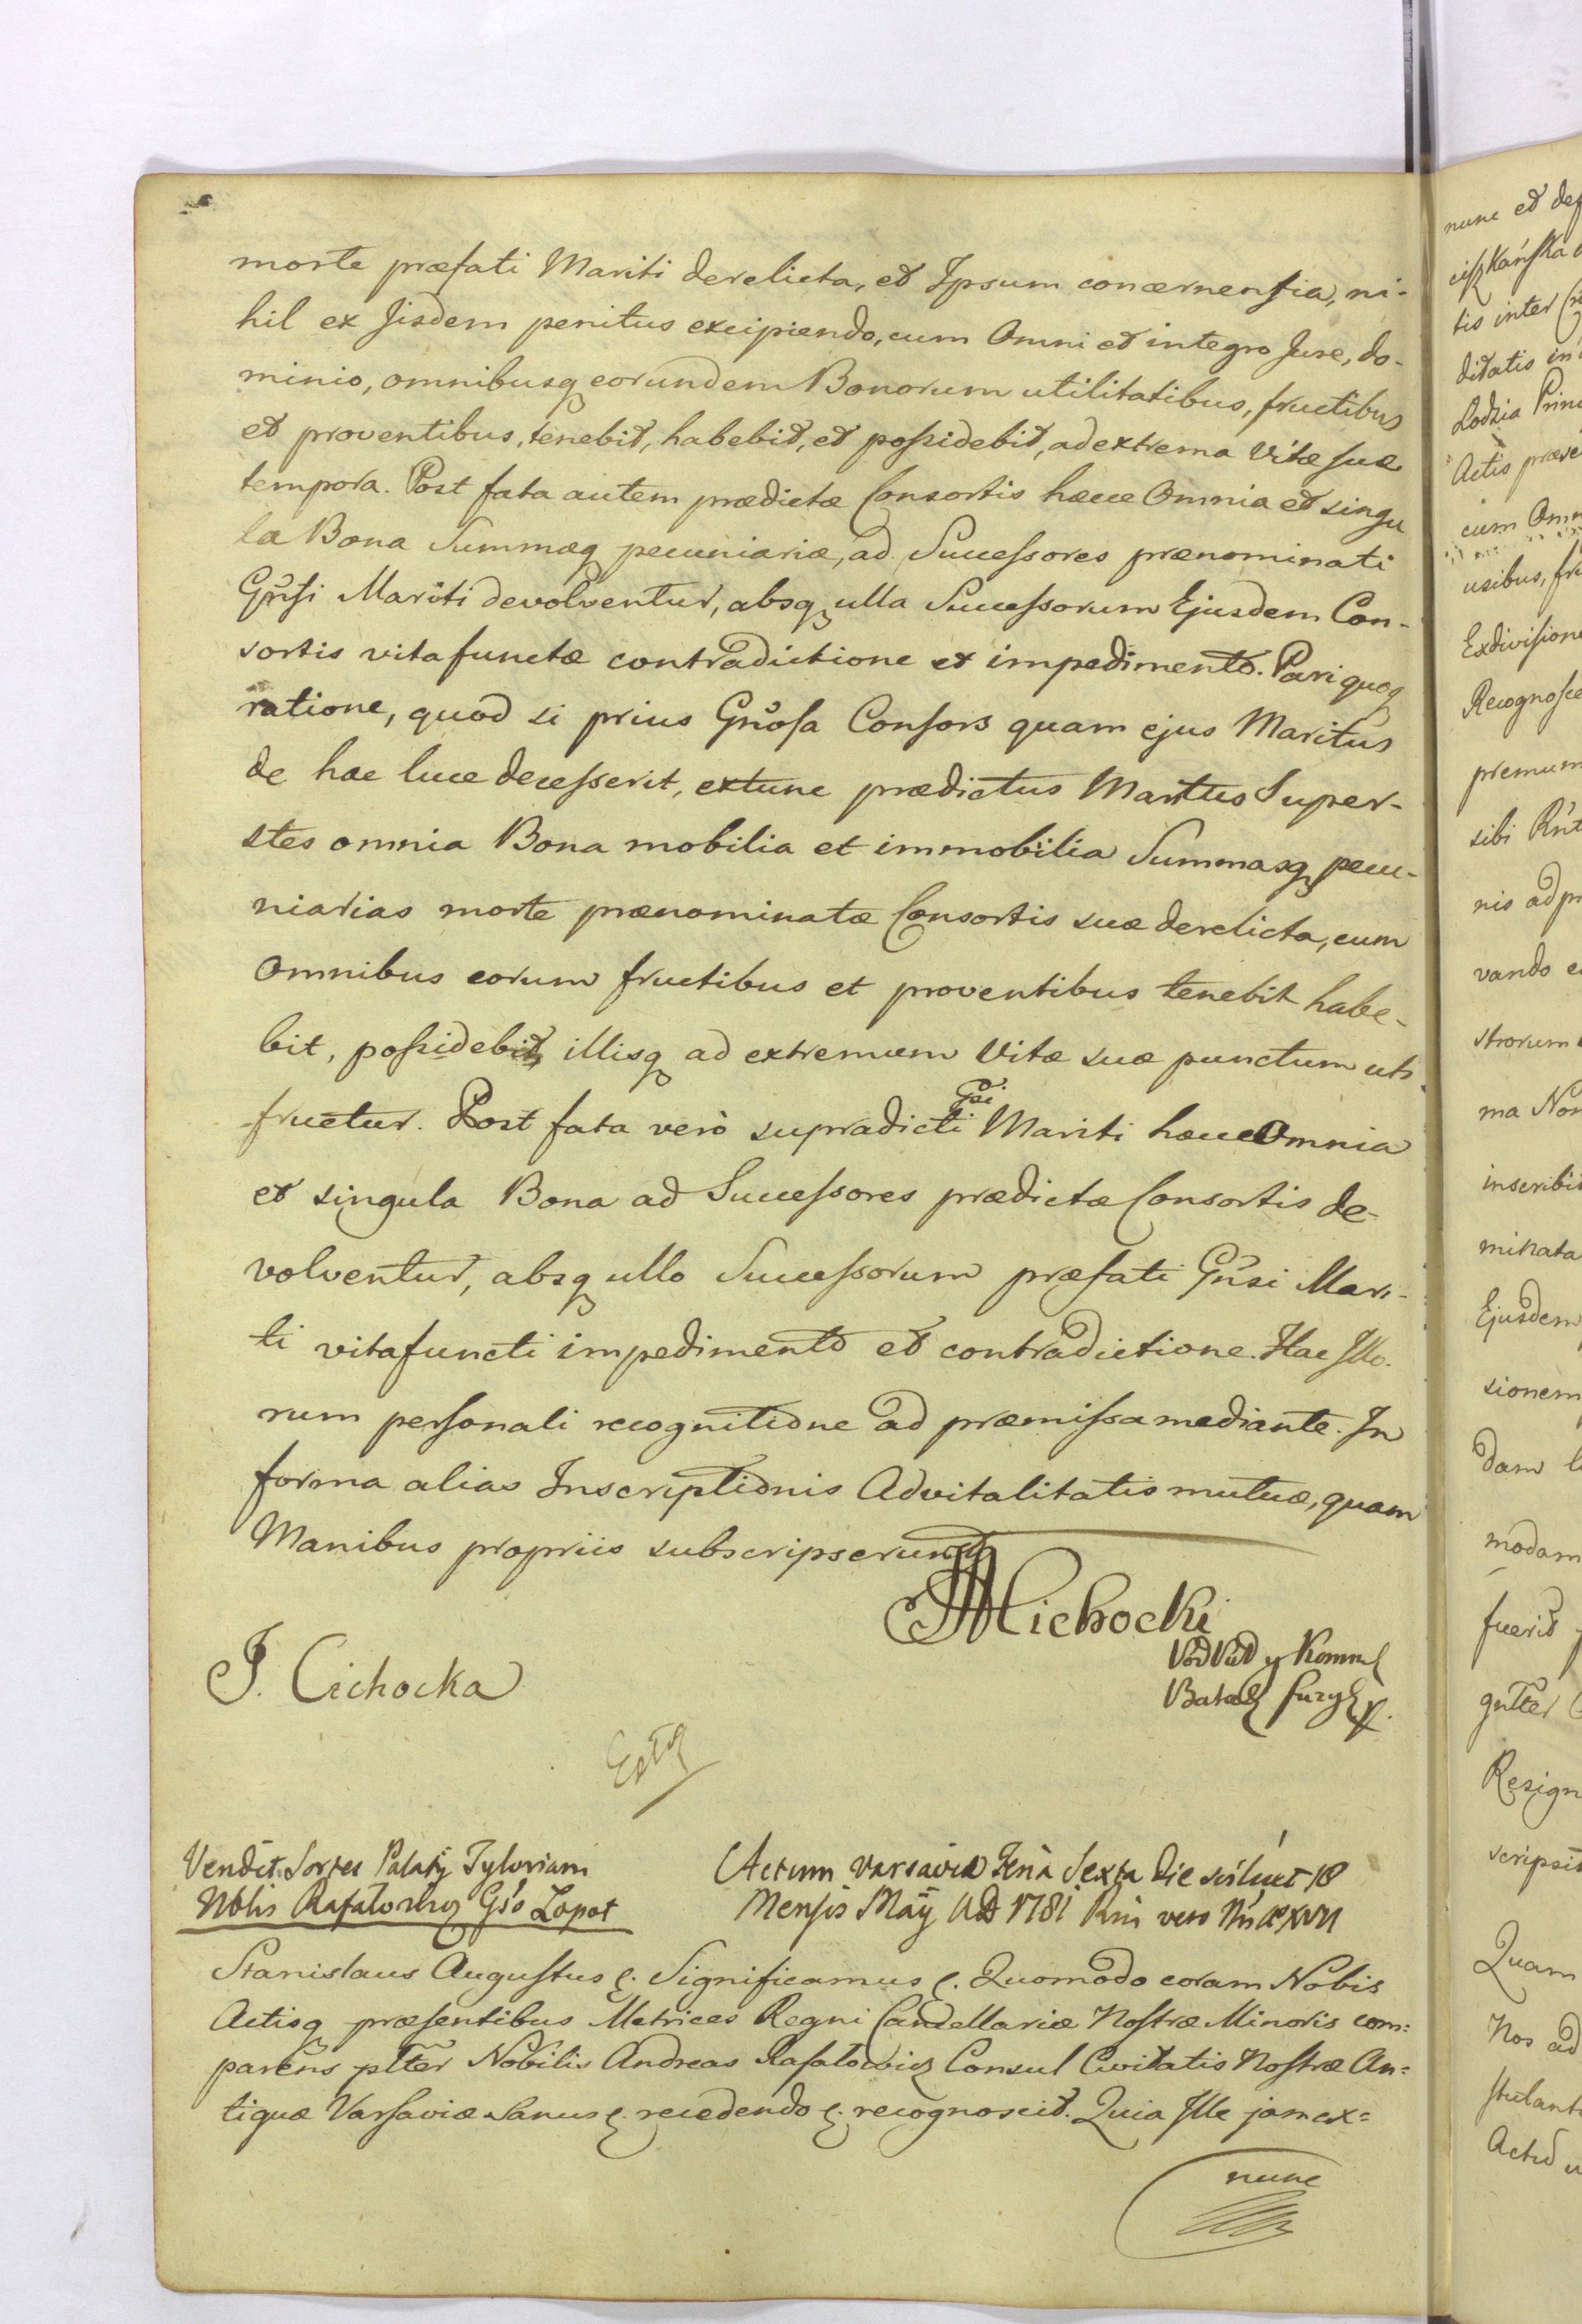 morte præfati Mariti derelicta, et Ipsum concernentia, ni-
hil ex Iisdem penitus excipiendo, cum Omni et integro Jure, do-
minio, omnibusq eorundem Bonorum utilitatibus, fructibus
et proventibus, tenebit, habebit, et possidebit, ad extrema Vitæ suæ
tempora. Post fata autem prædictæ Consortis hæcce Omnia et singu
la Bona Summæq pecuniariæ, ad Successores prænominati
Gñsi Mariti devolventur, absq ulla Successorum Ejusdem Con-
sortis vita functæ contradictione et impedimento. Pari quoq
ratione, quod si prius Gñosa Consors quam ejus Maritus
de hac luce decesserit, extunc prædictus Maritus Super-
stes omnia Bona mobilia et immobilia Summasq pecu-
niarias morte prænominatæ Consortis suæ derelicta, cum
Omnibus eorum fructibus et proventibus tenebit habe-
bit, possidebit, illisq ad extremum Vitæ suæ punctum uti
fruetur. Post fata verò supradicti Gñi Mariti hæcce Omnia
et singula Bona ad Successores prædictæ Consortis de-
volventur, absq ullo Successorum præfati Gñsi Mari-
ti vita functi impedimento et contradictione. Hac Illo-
rum personali recognitione ad præmissa mediante. In
forma alias Inscriptionis Advitalitatis mutuæ, quam
Manibus propriis subscripserunt
Cichocki
J. Cichocka
Vendit. Sortes Palatij
Nblis Gso Lopot
Actum Varsaviæ Feria Sexta Die scilicet 18
Mensis Maij AD 1781 Rni vero Nri XVII
Stanislaus Augustus &. Significamus &. Quomodo coram Nobis
Actisq præsentibus Metrices Regni Cancellariæ Nostræ Minoris com=
parens pltẽr Nobilis Andreas Rafalowicz Consul Civitatis Nostræ An=
tiquæ Varsaviæ Sanus &. recedendo &. recognoscit. Quia Ille jam ex=
nunc
nunc et
tis inter
ditatis in
Lodzia
Actis
cum
usibus,
Exdivisione
Recognosce
premum
sibi
nis ad
vando
strorum
ma
inscribit
minata
Ejusdem
sionem
dam
modam
fuerit
Resign
scripsit
Quam
Nos ad